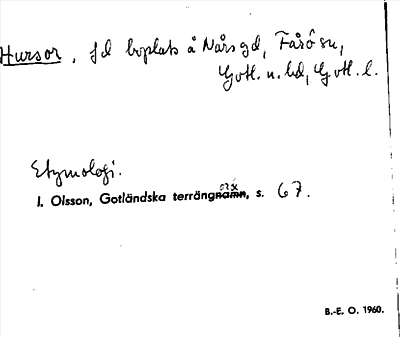 Hursor, fd boplats å Nårs gd, Fårö sn,
Gotl. n. hd, Gotl. l.
Etymologi.
I. Olsson, Gotländska terrängord, s. 67.
B.-E. O. 1960.